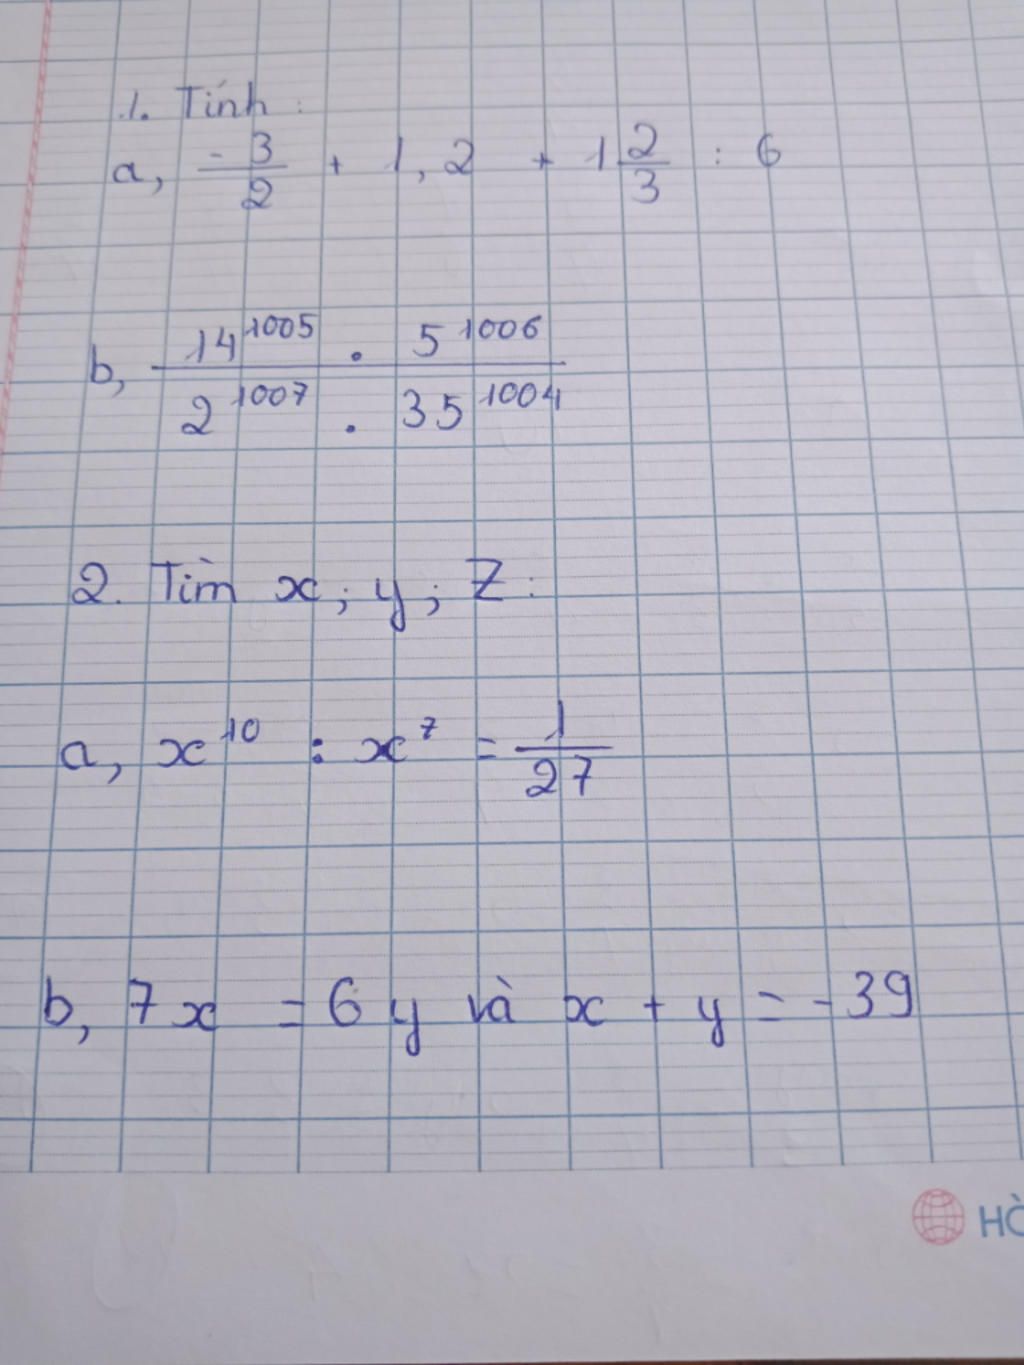 1. Tính :
a, -3/2 + 1,2 + 1 2/3 : 6
b, 14^1005 . 5^1006 / 2^1007 . 35^1004
2. Tìm x ; y ; Z :
a, x^10 : x^7 = 1/27
b, 7x = 6y và x + y = -39
HÒ